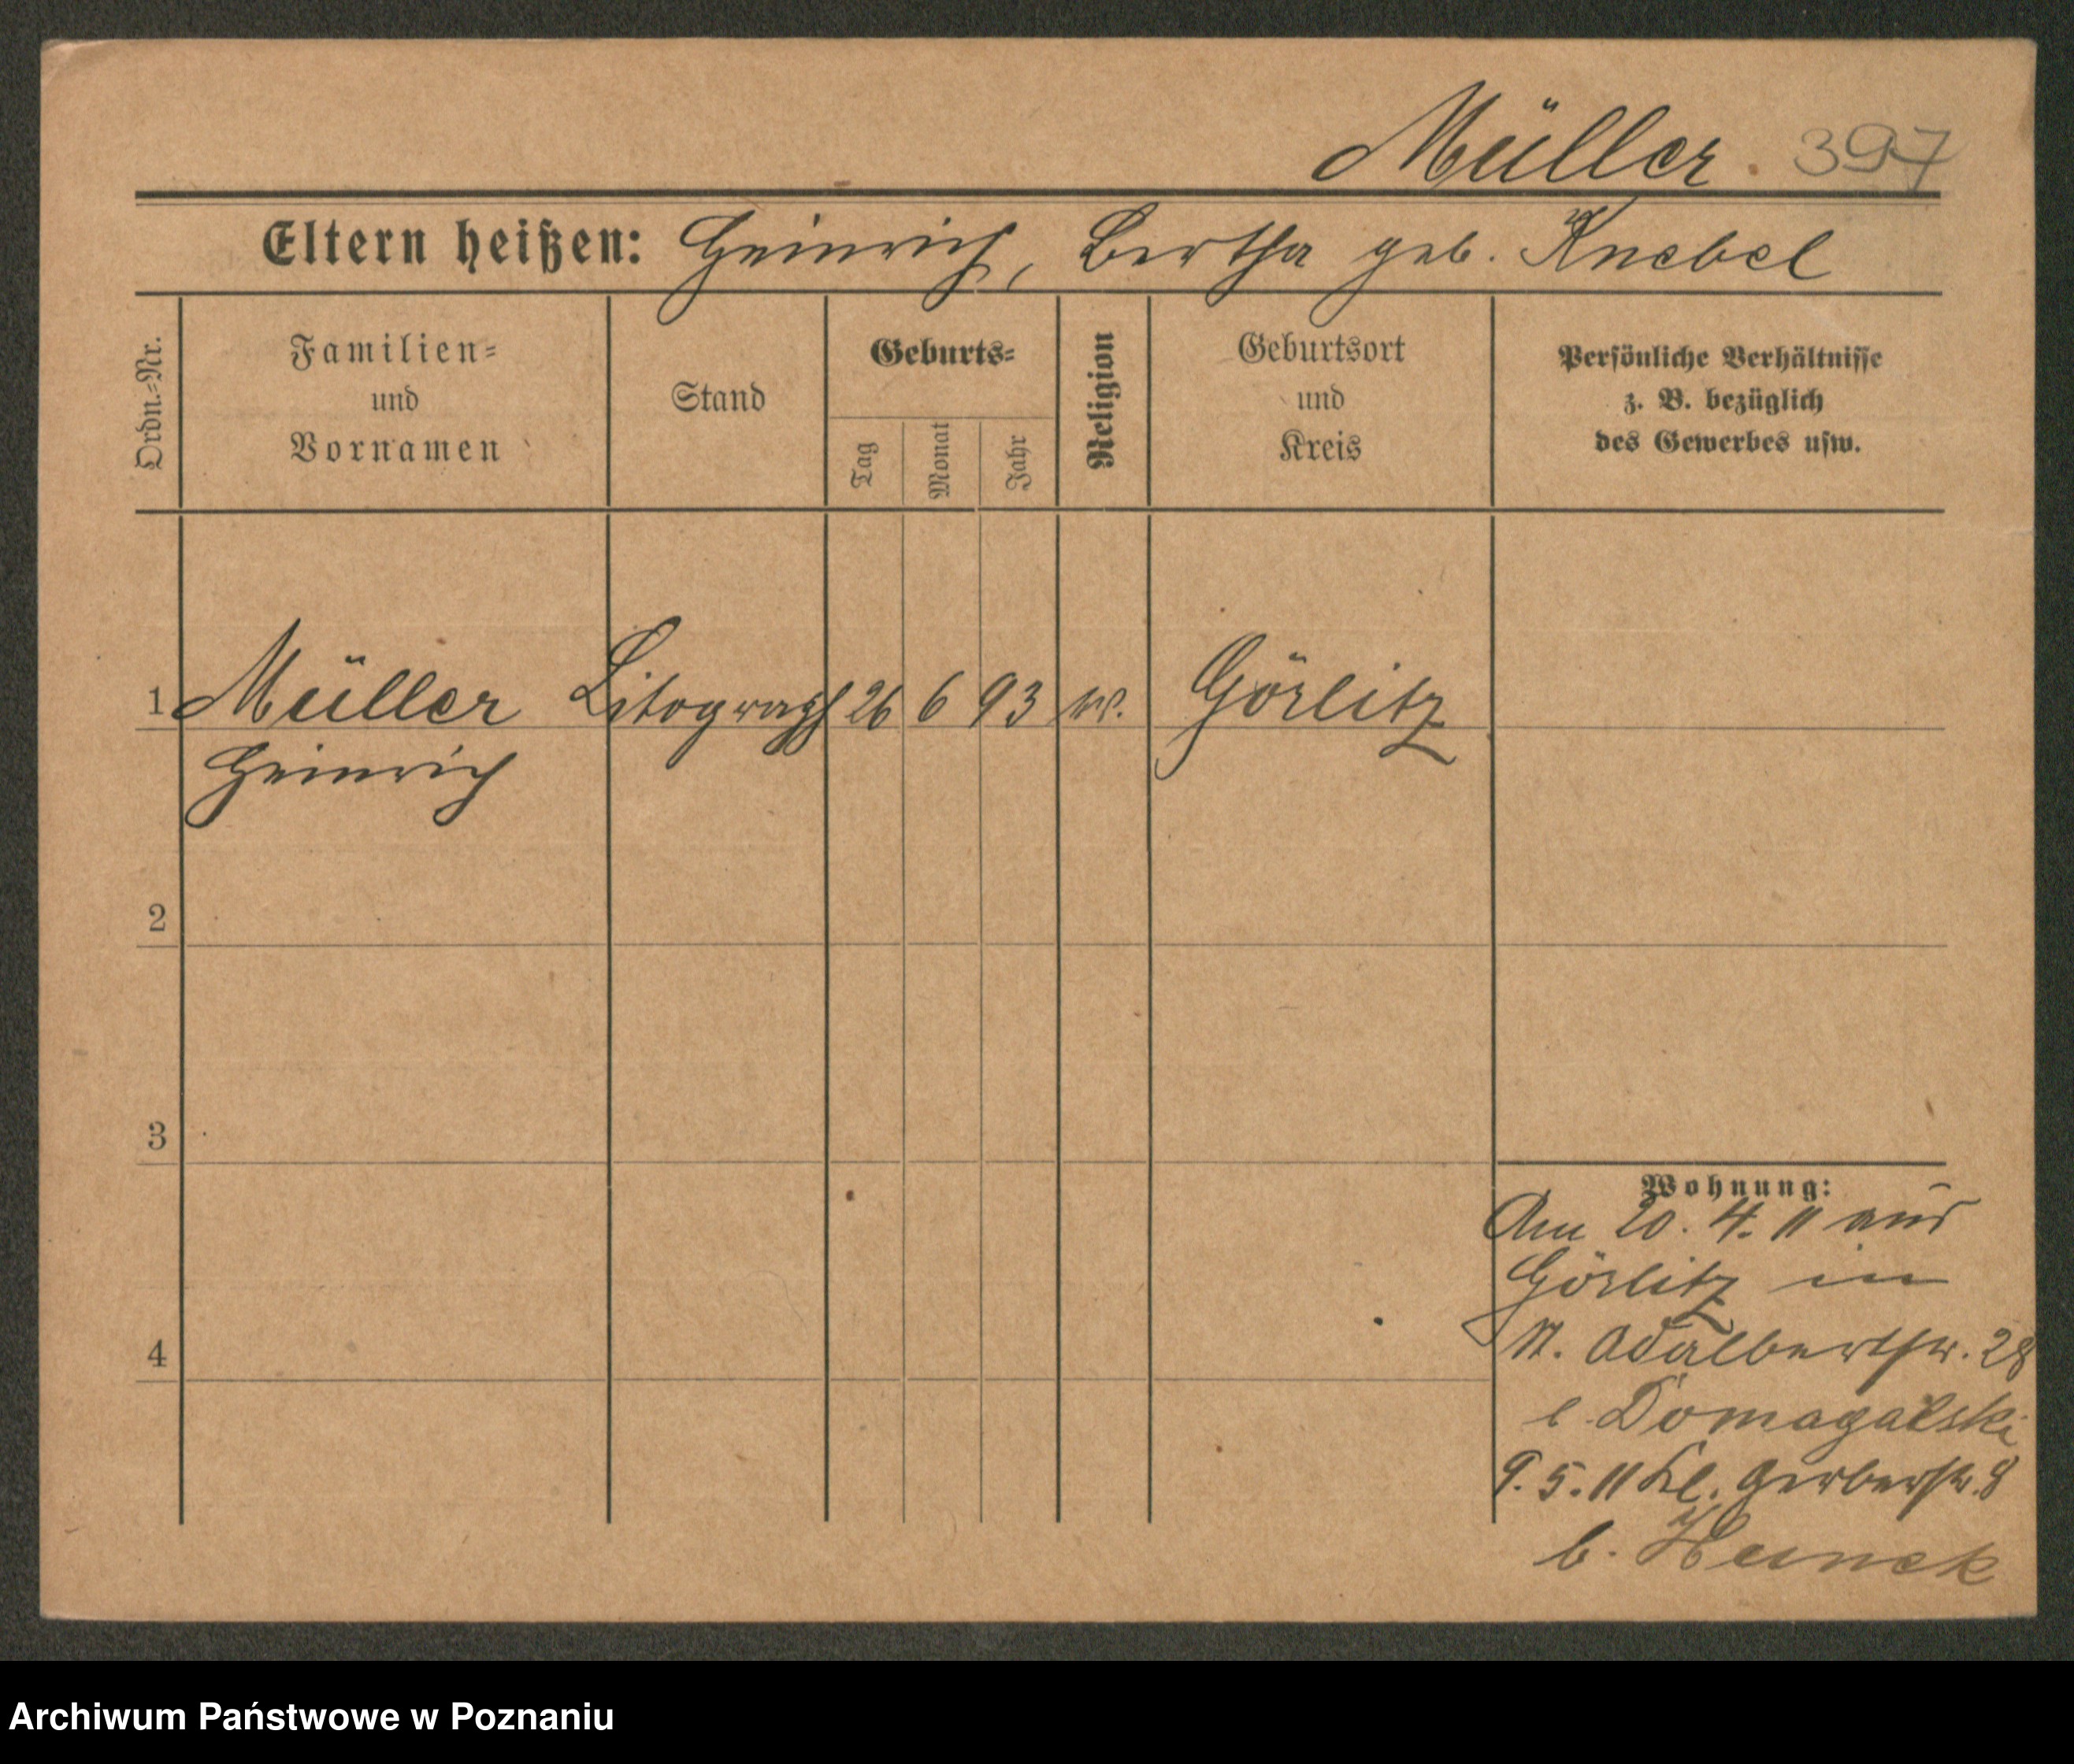 Müller. 397
Eltern heißen: Heinrich, Bertha geb. Knebel
Ordn.-Nr.
Familien-
und
Vornamen
Stand
Geburts-
Tag
Monat
Jahr
Religion
Geburtsort
und
Kreis
Persönliche Verhältnisse
z. B. bezüglich
des Gewerbes usw.
1 Müller Litograph 26 6 93 Görlitz
Heinrich
2
3
4
Wohnung:
Am 20. 4. 11 aus
Görlitz in
St. Adalbertstr. 28
Domagalski
9. 5. 11 Kl. Gerberstr. 8
b.
Archiwum Państwowe w Poznaniu